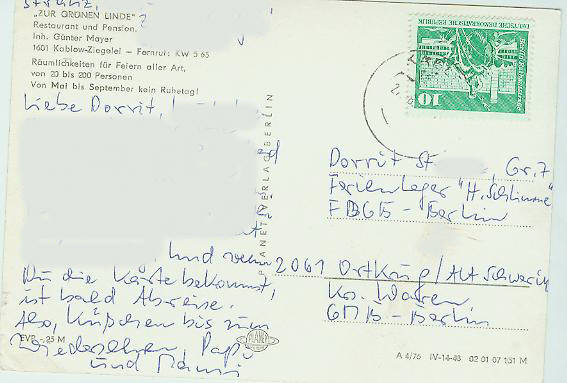 "ZUR GRÜNEN LINDE"
Restaurant und Pension.
Inh. Günter Mayer
1601 Kablow-Ziegelei – Fernruf: KW 5 65
Räumlichkeiten für Feiern aller Art,
von 20 bis 200 Personen
Von Mai bis September kein Ruhetag!
Liebe Dorrit,
und wenn
Du die Karte bekommst,
ist bald Abreise.
Also, Küßchen bis zum
Wiedersehen, Papi
und Mammi
EVP -,25 M
PLANET-VERLAG BERLIN
PLANET
DEUTSCHE DEMOKRATISCHE REPUBLIK
10
Dorrit St , Gr. 7
Ferienlager "H. Schlimme"
FDGB-Berlin
2061 Ortkrug/Alt Schwerin
Krs. Waren
GMB-Berlin
A 4/76 IV-14-48 02 01 07 131 M